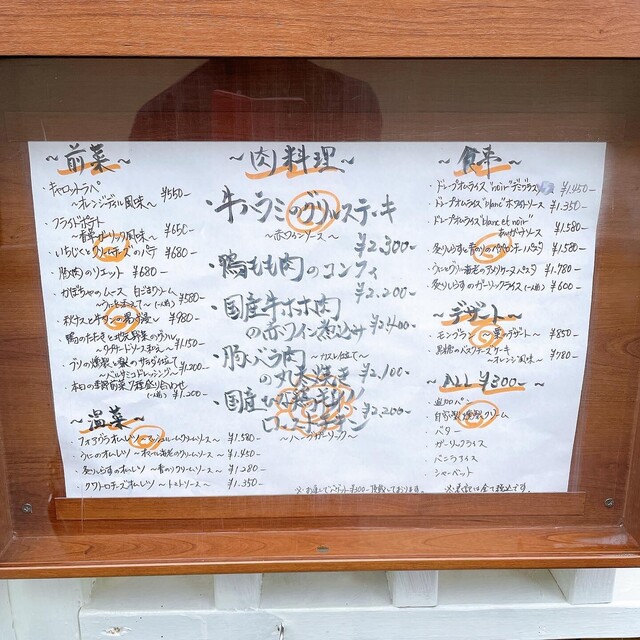 ～前菜～
・キャロットラペ
～オレンジディル風味～ ¥550-
・フライドポテト
～香草ガーリック風味～ ¥650-
・いちじくとクリームチーズのパテ ¥680-
・豚肉のリエット ¥680-
・かぼちゃのムース
¥580-
・秋ナスと牛タンの ¥980-
¥1,150-
～バルサミコドレッシング～ ¥1,200-
・本日の季節前菜7種盛り合わせ
¥1,200-
～温菜～
・フォアグラオムレツ ¥1,580-
・うにのオムレツ ～オマール海老のクリームソース～ ¥1,450-
・炙りしらすのオムレツ ～香のりクリームソース～ ¥1,280-
・クワトロチーズオムレツ ～トマトソース～ ¥1,350-
～肉料理～
・牛ハラミのグリルステーキ
～赤ワインソース～ ¥2,300-
・鴨もも肉のコンフィ
¥2,200-
・国産牛ホホ肉
の赤ワイン煮込み ¥2,400-
・豚バラ肉 ～カスレ仕立て～
¥2,100-
・国産ひな鶏
ローストチキン ¥2,200-
～ハーブガーリック～
～食事～
・ドレープオムライス "noir" デミグラス ¥1,450-
・ドレープオムライス "blanc" ホワイトソース ¥1,350-
・ドレープオムライス "blanc et noir"
あいがけソース ¥1,580-
¥1,580-
¥1,780-
・炙りしらすのガーリックライス ¥600-
～デザート～
・モンブラン ¥850-
バスクチーズケーキ
～オレンジ風味～ ¥780-
～ALL ¥300-～
・追加パン
・自家製燻製クリーム
・バター
・ガーリックライス
・バニラアイス
・シャーベット
※お通しでバゲット¥300-頂戴しております。
※表記は全て税込です。